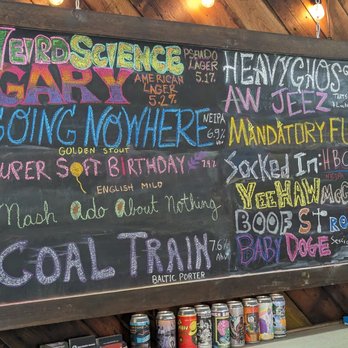 WEIRDSCIENCE PSEUDO LAGER 5.1%
GARY AMERICAN LAGER 5.2%
GOING NOWHERE NEIPA 6.9%
GOLDEN STOUT
SUPER SOFT BIRTHDAY
ENGLISH MILD
Mash Ado About Nothing
COAL TRAIN 7.6% ABV
BALTIC PORTER
HEAVYGHOS
AW JEEZ
MANDATORY FU
Socked In: HBC
YEEHAW MC
BOOF STRO
BABY DOGE